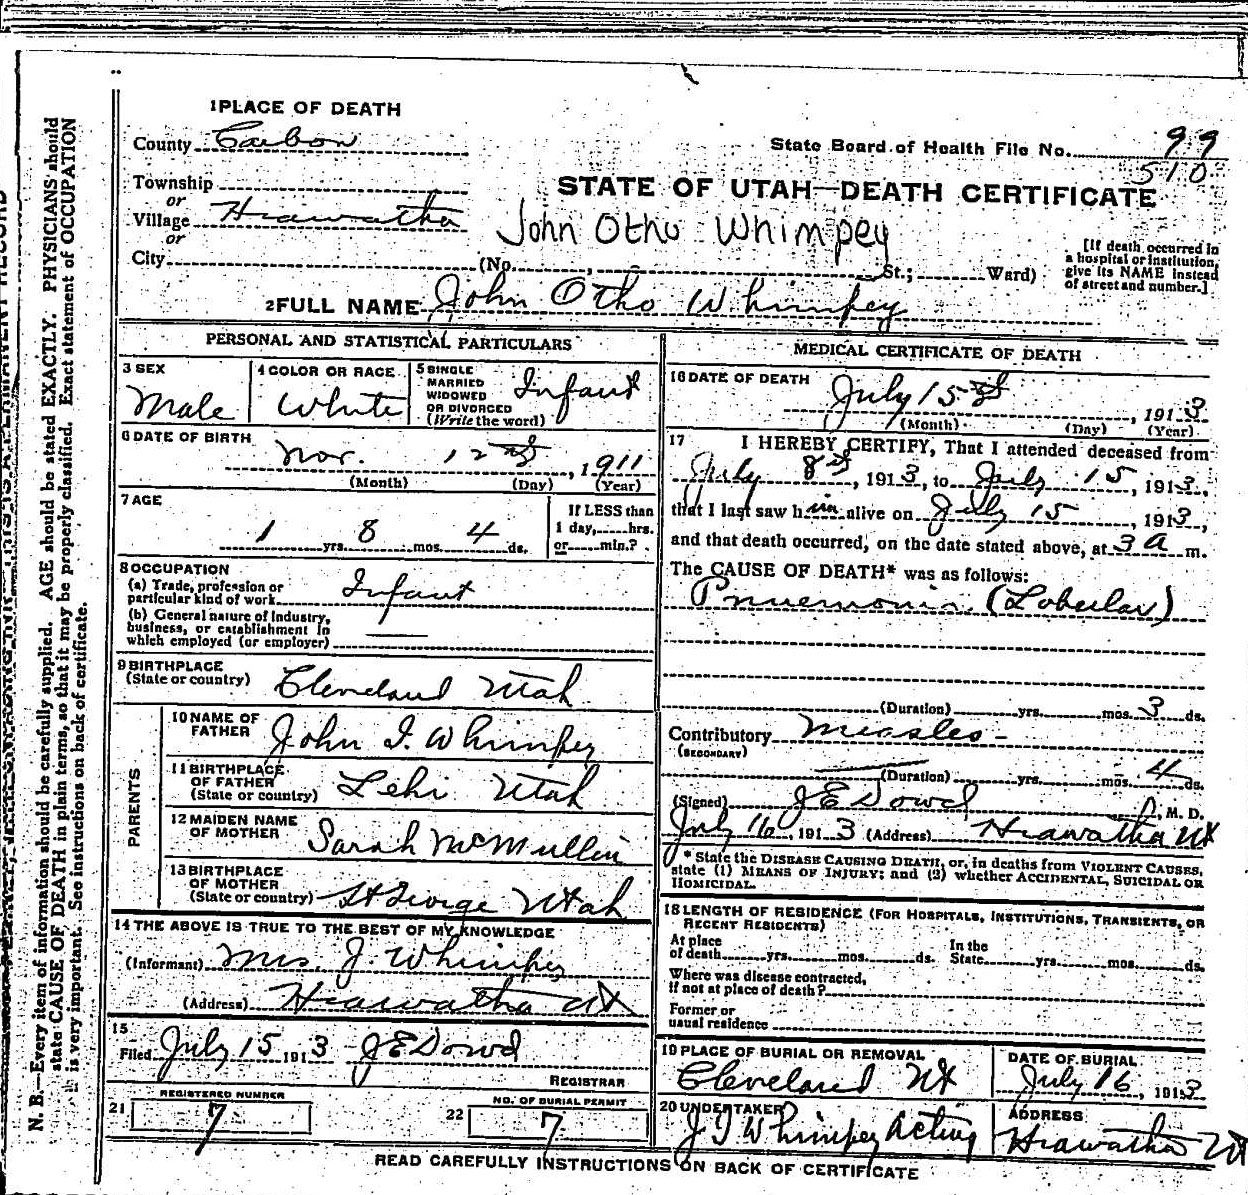 1 PLACE OF DEATH
County Carbon
State Board of Health File No. 99
510
Township
or
Village Hiawatha
or
City
STATE OF UTAH—DEATH CERTIFICATE
John Otho Whimpey
(No. , St.; Ward)
[If death occurred in
a hospital or institution,
give its NAME instead
of street and number.]
2 FULL NAME John Otho Whimpey
PERSONAL AND STATISTICAL PARTICULARS
3 SEX
Male
4 COLOR OR RACE
White
5 SINGLE
MARRIED
WIDOWED
OR DIVORCED
(Write the word)
Infant
6 DATE OF BIRTH
Nov. 12 , 1911
(Month) (Day) (Year)
7 AGE
1 yrs. 8 mos. 4 ds.
If LESS than
1 day, hrs.
or min.?
8 OCCUPATION
(a) Trade, profession or
particular kind of work Infant
(b) General nature of industry,
business, or establishment in
which employed (or employer)
9 BIRTHPLACE
(State or country) Cleveland Utah
PARENTS
10 NAME OF
FATHER John I. Whimpey
11 BIRTHPLACE
OF FATHER
(State or country) Lehi Utah
12 MAIDEN NAME
OF MOTHER Sarah McMullin
13 BIRTHPLACE
OF MOTHER
(State or country) St George Utah
14 THE ABOVE IS TRUE TO THE BEST OF MY KNOWLEDGE
(Informant) Mrs. J. Whimpey
(Address) Hiawatha Ut
15
Filed July 15 1913 J E Dowd
REGISTRAR
21 REGISTERED NUMBER
7
22 NO. OF BURIAL PERMIT
7
MEDICAL CERTIFICATE OF DEATH
16 DATE OF DEATH
July 15 , 1913
(Month) (Day) (Year)
17 I HEREBY CERTIFY, That I attended deceased from
July 8 , 1913, to July 15, 1913,
that I last saw him alive on July 15, 1913,
and that death occurred, on the date stated above, at 3 a m.
The CAUSE OF DEATH* was as follows:
Pnuemonia (Lobular)
(Duration) yrs. mos. 3 ds.
Contributory Measles -
(SECONDARY)
(Duration) yrs. mos. 4 ds.
(Signed) J E Dowd , M. D.
July 16, 1913 (Address) Hiawatha Ut
* State the DISEASE CAUSING DEATH, or, in deaths from VIOLENT CAUSES,
state (1) MEANS OF INJURY; and (2) whether ACCIDENTAL, SUICIDAL OR
HOMICIDAL.
18 LENGTH OF RESIDENCE (FOR HOSPITALS, INSTITUTIONS, TRANSIENTS, OR
RECENT RESIDENTS)
At place
of death yrs. mos. ds.
In the
State yrs. mos. ds.
Where was disease contracted,
if not at place of death?
Former or
usual residence
19 PLACE OF BURIAL OR REMOVAL
Cleveland Ut
DATE OF BURIAL
July 16, 1913
20 UNDERTAKER
J I Whimpey Acting
ADDRESS
Hiawatha Ut
READ CAREFULLY INSTRUCTIONS ON BACK OF CERTIFICATE
N. B.—Every item of information should be carefully supplied. AGE should be stated EXACTLY. PHYSICIANS should
state CAUSE OF DEATH in plain terms, so that it may be properly classified. Exact statement of OCCUPATION
is very important. See instructions on back of certificate.